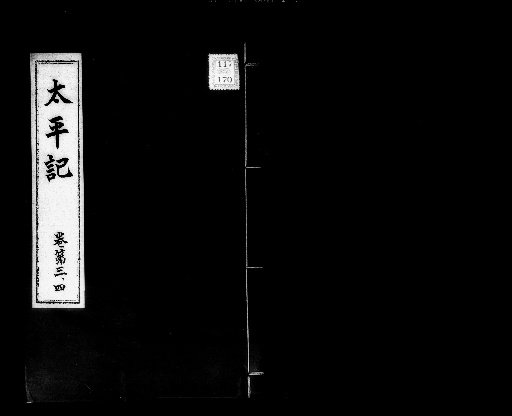 太平記
卷第三、四
117
170